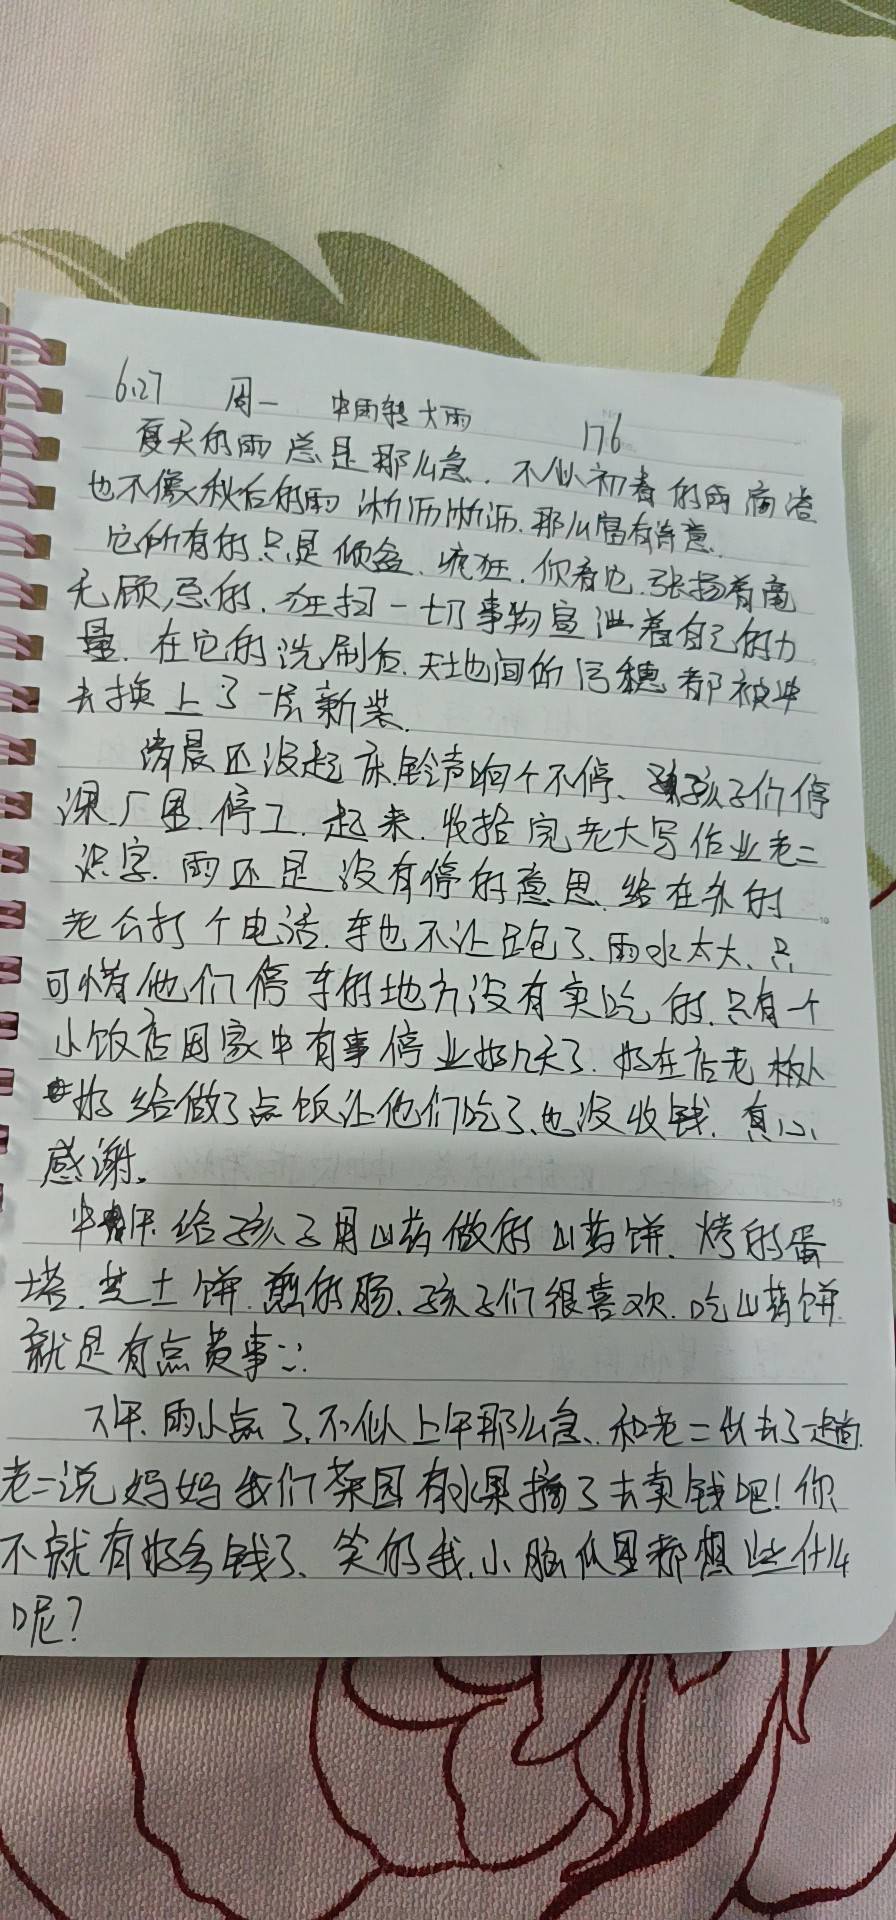 6.27 周一 中雨转大雨 176
夏天的雨总是那么急.. 不似初春的雨
也不像秋后的雨淅沥淅沥. 那么富有诗意.
它所有的只是倾盆、疯狂. 你看它. 张扬着毫
无顾忌的. 狂扫一切事物宣泄着自己的力
量. 在它的洗刷后. 天地间的污秽都被冲
去换上了一层新装.
清晨还没起床. 铃声响个不停、孩子们停
课. 厂里. 停工. 起来. 收拾完老大写作业老二
识字. 雨还是没有停的意思. 给在外的
老公打个电话. 车也不让跑了、雨水太大、只
可惜他们停车的地方没有卖吃的. 只有一个
小饭店因家中有事停业好几天了. 好在店老板人
好给做了点饭让他们吃了、也没收钱. 真心
感谢。
中午. 给孩子用山药做的山药饼、烤的蛋
塔. 芝士饼. 煎的肠、孩子们很喜欢. 吃山药饼.
就是有点费事
下午. 雨小点了. 不似上午那么急、和老二出去了一趟.
老二说妈妈我们菜园有水果摘了去卖钱吧! 你
不就有好多钱了、笑的我. 小脑瓜里都想些什么
呢?